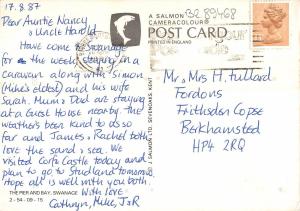 17.8.87
Dear Auntie Nancy
& Uncle Harold
Have come to Swanage
for the weekend. Staying in a
caravan along with Simon
(Mike's eldest) and his wife
Sarah. Mum & Dad are staying
at a Guest House nearby. The
weather's been kind to us so
far and James & Rachel both
love the sand & sea. We
visited Corfe Castle today and
plan to go to Studland tomorrow.
Hope all is well with you both.
With love
Cathryn, Mike, J & R
THE PIER AND BAY, SWANAGE
2-54-09-15
A SALMON
CAMERACOLOUR
POST CARD
PRINTED IN ENGLAND
J. SALMON LTD., SEVENOAKS, KENT
3289468
Mr & Mrs H. Tullard
Fordons
Frithsden Copse
Berkhamsted
HP4 2RQ